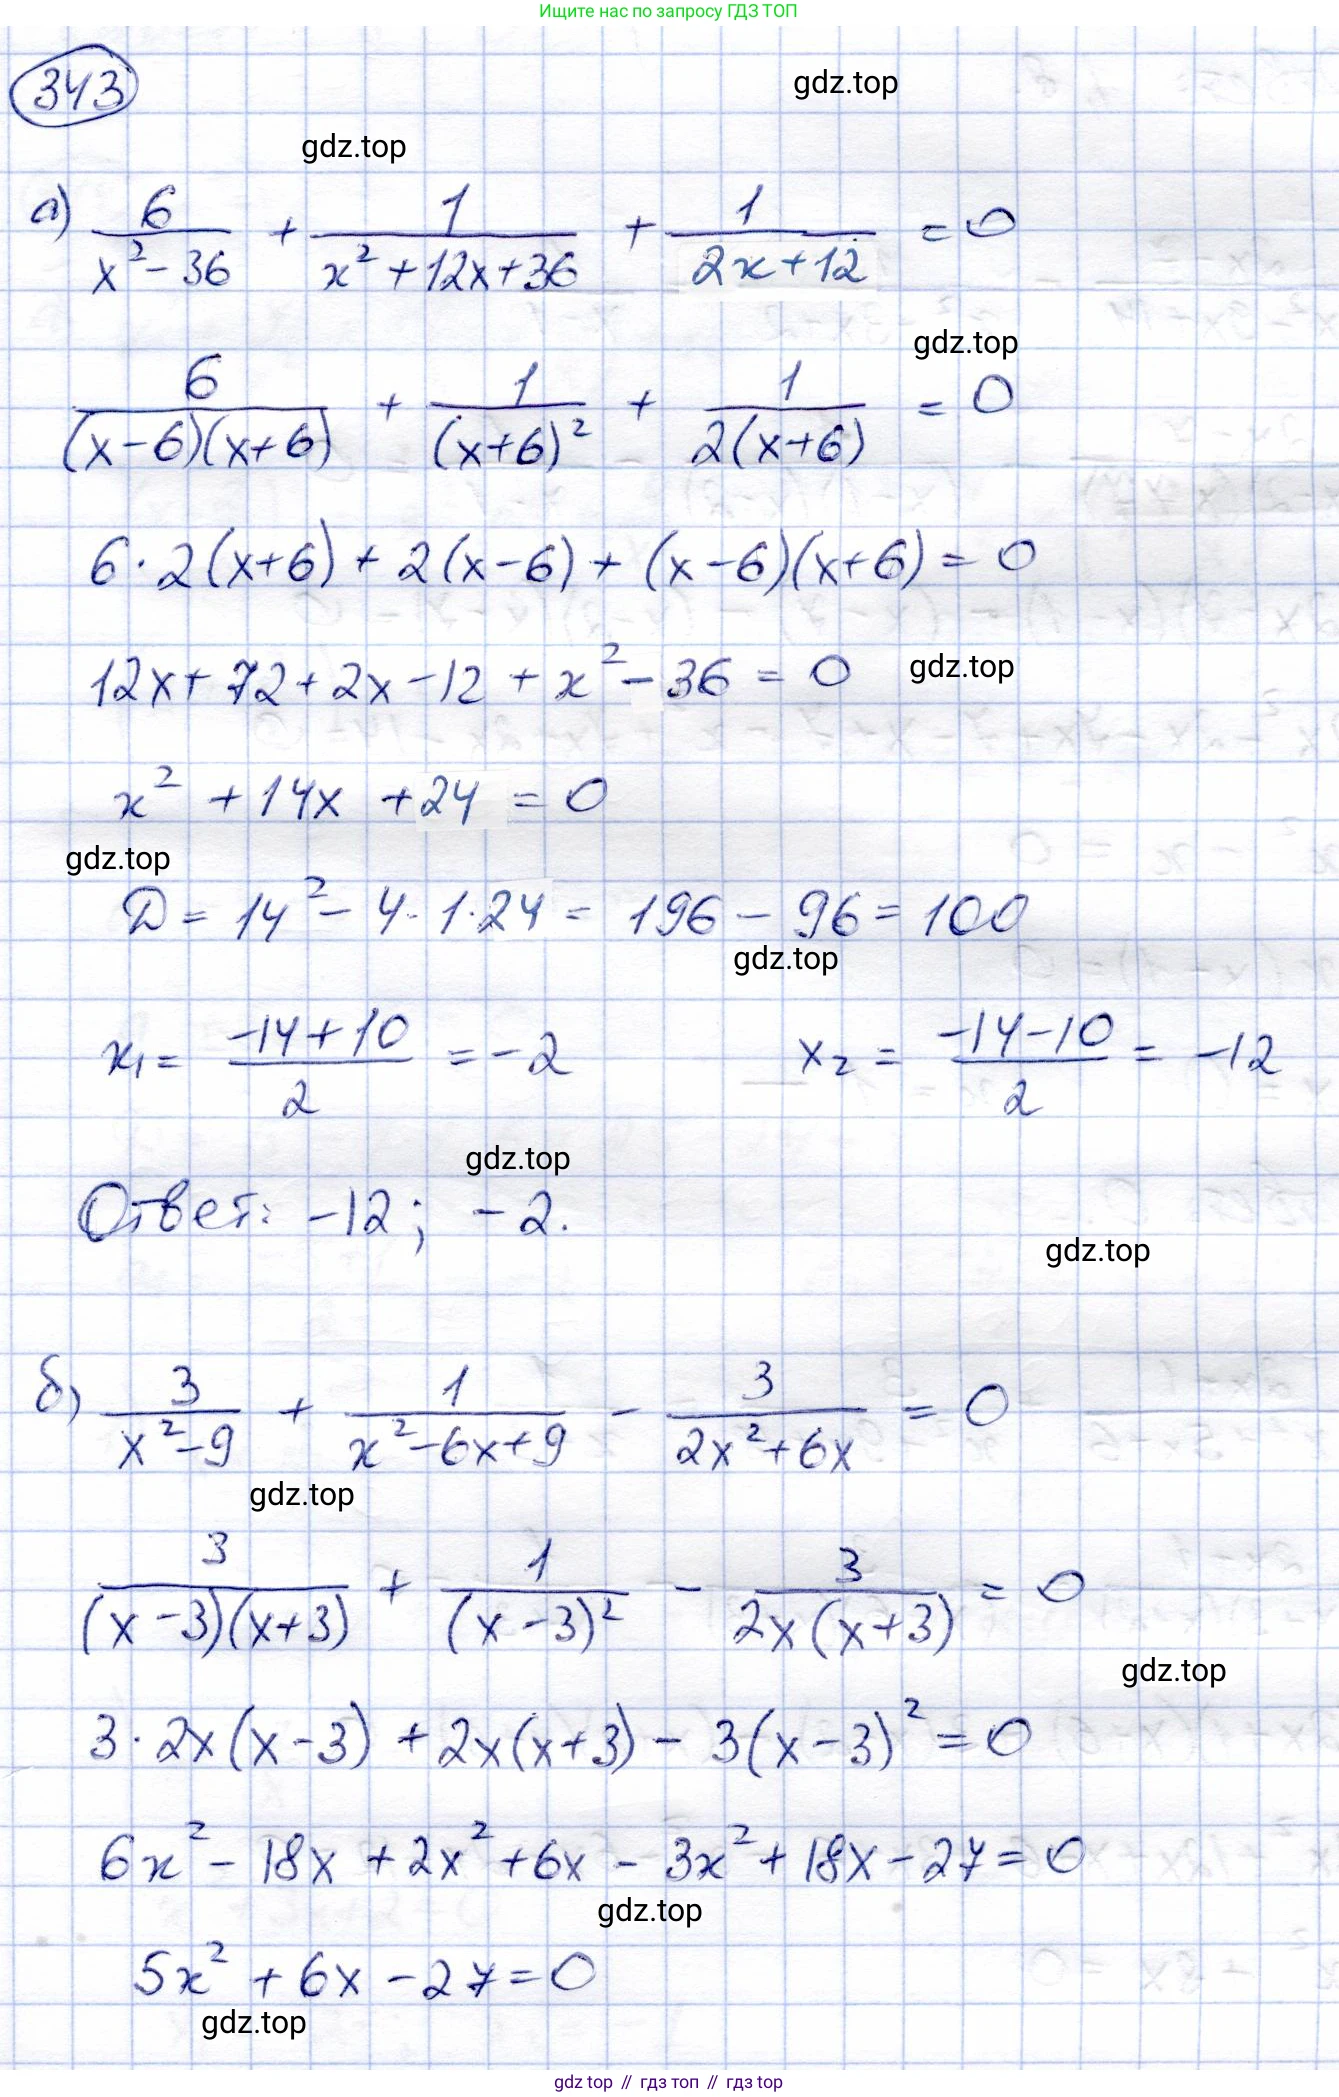 Ищите нас по запросу ГДЗ ТОП
343
gdz.top
gdz.top
а) 6/(x² - 36) + 1/(x² + 12x + 36) + 1/(2x + 12) = 0
gdz.top
6/((x - 6)(x + 6)) + 1/(x + 6)² + 1/(2(x + 6)) = 0
6 · 2(x + 6) + 2(x - 6) + (x - 6)(x + 6) = 0
12x + 72 + 2x - 12 + x² - 36 = 0
gdz.top
x² + 14x + 24 = 0
gdz.top
D = 14² - 4 · 1 · 24 = 196 - 96 = 100
gdz.top
x₁ = (-14 + 10)/2 = -2 x₂ = (-14 - 10)/2 = -12
gdz.top
Ответ: -12; -2.
gdz.top
б) 3/(x² - 9) + 1/(x² - 6x + 9) - 3/(2x² + 6x) = 0
gdz.top
3/((x - 3)(x + 3)) + 1/(x - 3)² - 3/(2x(x + 3)) = 0
gdz.top
3 · 2x(x - 3) + 2x(x + 3) - 3(x - 3)² = 0
6x² - 18x + 2x² + 6x - 3x² + 18x - 27 = 0
gdz.top
5x² + 6x - 27 = 0
gdz.top
gdz top // гдз топ // гдз top